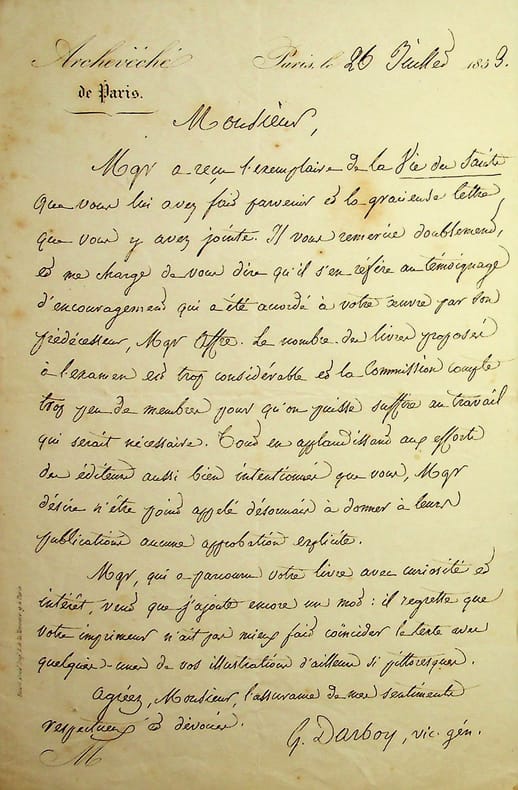 Archevêché
de Paris.
Paris, le 26 Juillet 1853.
Monsieur,
Mgr a reçu l'exemplaire de la Vie des Saints
que vous lui avez fait parvenir et la gracieuse lettre
que vous y avez jointe. Il vous remercie doublement,
et me charge de vous dire qu'il s'en réfère au témoignage
d'encouragement qui a été accordé à votre œuvre par son
prédécesseur, Mgr Affre. Le nombre des livres proposés
à l'examen est trop considérable et la Commission compte
trop peu de membres pour qu'on puisse suffire au travail
qui serait nécessaire. Tout en applaudissant aux efforts
des éditeurs aussi bien intentionnés que vous, Mgr
désire n'être point appelé désormais à donner à leurs
publications aucune approbation explicite.
Mgr, qui a parcouru votre livre avec curiosité et
intérêt, veut que j'ajoute encore un mot : il regrette que
votre imprimeur n'ait pas mieux fait coïncider le texte avec
quelques-unes de vos illustrations d'ailleurs si pittoresques.
Agréez, Monsieur, l'assurance de mes sentiments
respectueux et dévoués.
G. Darboy, vic. gén.
M